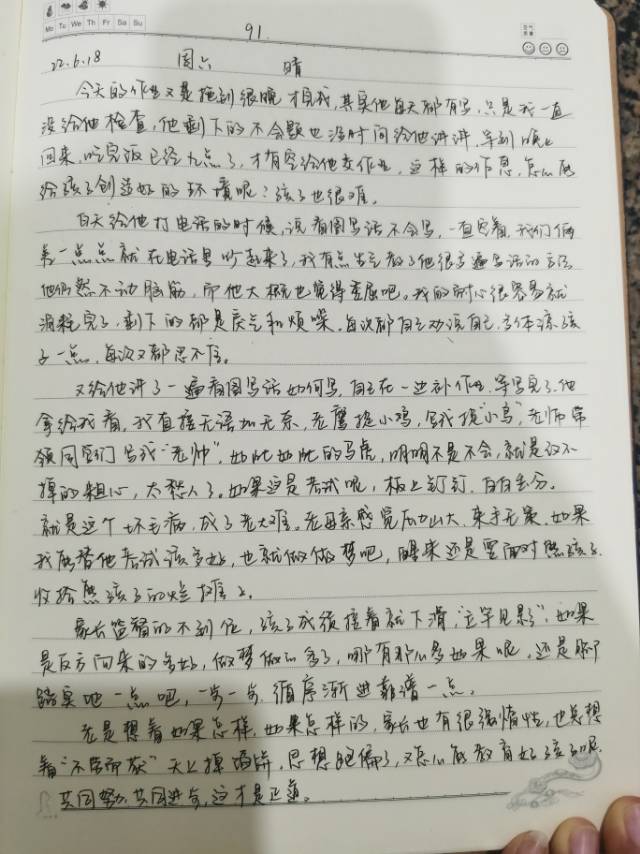 Mo Tu We Th Fr Sa Su
91.
22.6.18 周六 晴
今天的作业又是拖到很晚才完成,其实他每天都有写,只是我一直
没给他检查,他剩下的不会题也没时间给他讲讲,等到晚上
回来,吃完饭已经九点了,才有空给他查作业,这样的作息,怎么能
给孩子创造好的环境呢?孩子也很难。
白天给他打电话的时候,说看图写话不会写,一直哭着,我们俩
差一点点就在电话里吵起来了,我有点生气教了他很多遍写话的方法
他仍然不动脑筋,而他大概也觉得委屈吧。我的耐心很容易就
消耗完了,剩下的都是戾气和烦躁。每次都自己劝说自己,多体谅孩
子一点,每次又都忍不住。
又给他讲了一遍看图写话如何写,自己在一边补作业,等写完了,他
拿给我看,我直接无语加无奈,老鹰捉小鸡,写成捉“小鸟”,老师带
领同学们写成“老帅”,如此如此的马虎,明明不是不会,就是改不
掉的粗心,太愁人了。如果这是考试呢,板上钉钉,白白丢分。
就是这个坏毛病,成了老大难。老母亲感觉压力山大,束手无策,如果
我能替他考试该多好,也就做做梦吧,醒来还是要面对熊孩子.
收拾熊孩子的烂摊子。
家长监督的不到位,孩子成绩接着就下滑,“立竿见影”,如果
是反方向来的多好,做梦做的多了,哪有那么多如果呢,还是脚
踏实地一点吧,一步一步,循序渐进靠谱一点。
老是想着如果怎样,如果怎样的,家长也有很强惰性,也总想
着“不劳而获”天上掉馅饼,思想跑偏了,又怎么能教育好孩子呢.
共同努力,共同进步,这才是正道。